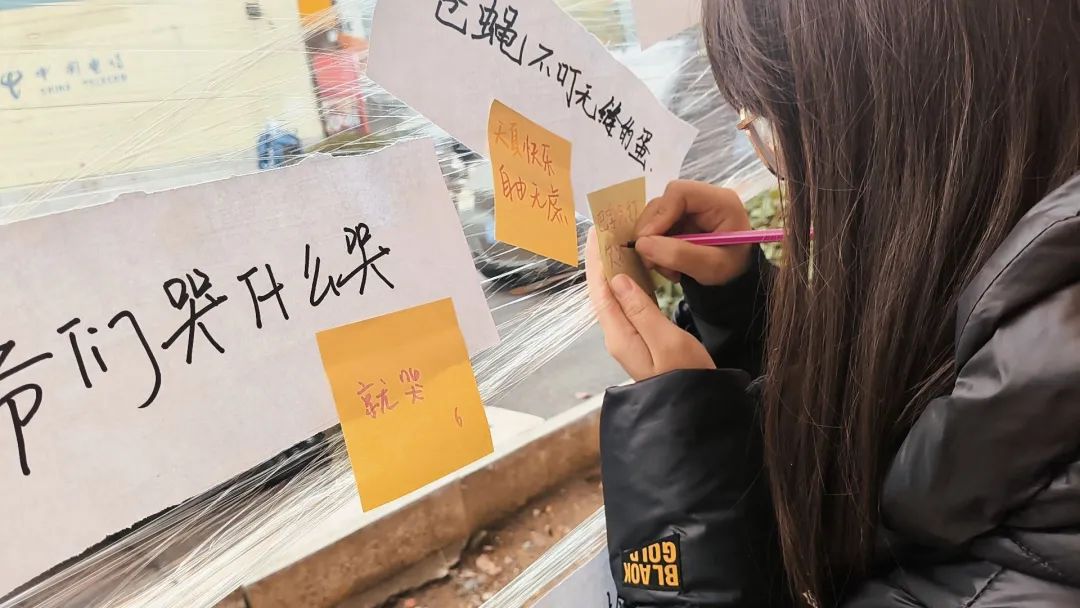 中国电信
CHINA TELECOM
苍蝇不叮无缝的蛋.
天真快乐
自由无虑.
们哭什么哭
就哭
6
BLACK
GOLD